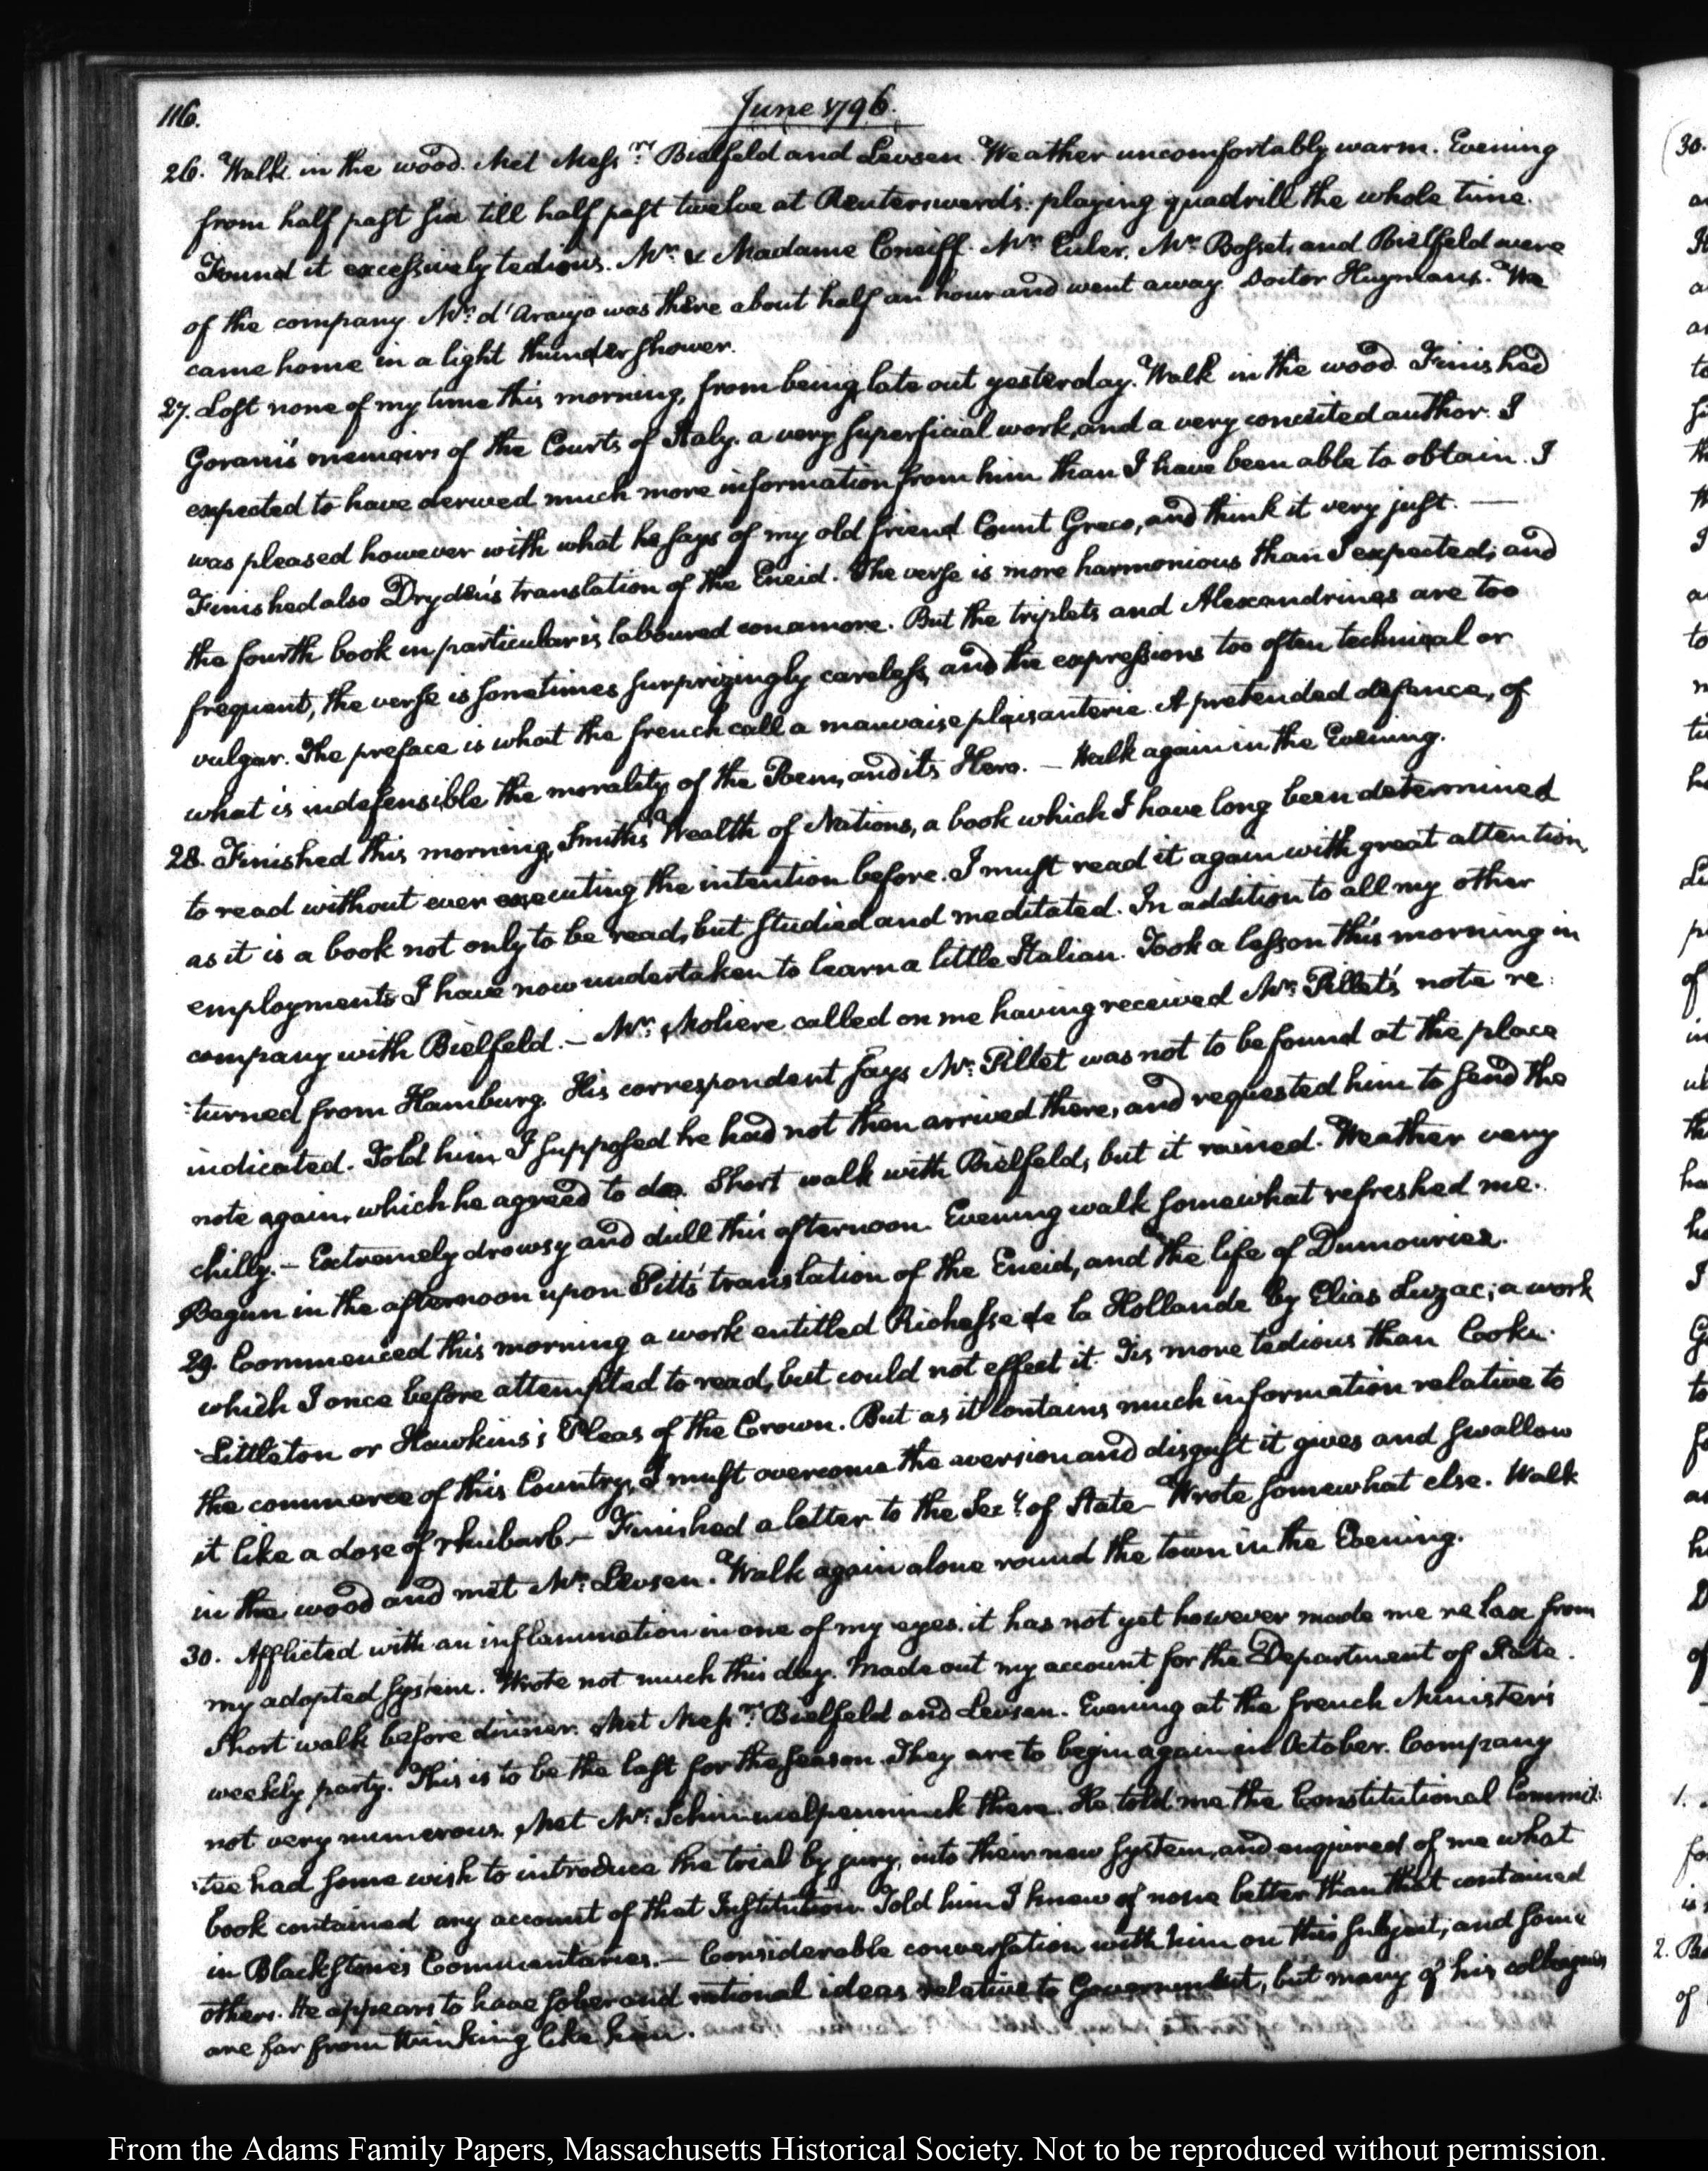 116.
June 1796.
26. Walk in the wood. Met Messrs: Bielfeld and Levsen. Weather uncomfortably warm. Evening
from half past six till half past twelve at Reuterswerd's: playing quadrill the whole time.
Found it excessively tedious. Mr: & Madame Creiff. Mr: Euler. Mr: Bosset, and Bielfeld were
of the company. Mr: d'Araujo was there about half an hour and went away. Doctor Huymans. We
came home in a light thunder shower.
27. Lost none of my time this morning, from being late out yesterday. Walk in the wood. Finished
Gorani's memoirs of the Courts of Italy. a very superficial work, and a very conceited author. I
expected to have derived much more information from him than I have been able to obtain. I
was pleased however with what he says of my old friend Count Greco, and think it very just. —
Finished also Dryden's translation of the Eneid. The verse is more harmonious than I expected; and
the fourth book in particular is laboured con amore. But the triplets and Alexandrines are too
frequent, the verse is sometimes surprizingly careless, and the expressions too often technical or
vulgar. The preface is what the french call a mauvaise plaisanterie. A pretended defence, of
what is indefensible the morality of the Poem, and its Hero. — Walk again in the Evening.
28. Finished this morning, Smith's Wealth of Nations, a book which I have long been determined
to read without ever executing the intention before. I must read it again with great attention,
as it is a book not only to be read, but studied and meditated. In addition to all my other
employments I have now undertaken to learn a little Italian. Took a lesson this morning in
company with Bielfeld. — Mr: Moliere called on me having received Mr: Pillet's note re-
turned from Hamburg. His correspondent says Mr: Pillet was not to be found at the place
indicated. Told him I supposed he had not then arrived there, and requested him to send the
note again, which he agreed to do. Short walk with Bielfeld, but it rained. Weather very
chilly. — Extremely drowsy and dull this afternoon. Evening walk somewhat refreshed me.
Begun in the afternoon upon Pitt's translation of the Eneid, and the life of Dumouriez.
29. Commenced this morning a work entitled Richesse de la Hollande by Elias Luzac; a work
which I once before attempted to read, but could not effect it. Tis more tedious than Coke
Littleton or Hawkins's Pleas of the Crown. But as it contains much information relative to
the commerce of this Country, I must overcome the aversion and disgust it gives and swallow
it like a dose of rhubarb. — Finished a letter to the Secy: of State — Wrote somewhat else. Walk
in the wood and met Mr: Levsen. Walk again alone round the town in the Evening.
30. Afflicted with an inflammation in one of my eyes. it has not yet however made me relax from
my adopted system. Wrote not much this day. Made out my account for the Department of State.
Short walk before dinner. Met Messrs: Bielfeld and Levsen. Evening at the french Minister's
weekly party. This is to be the last for the season. They are to begin again in October. Company
not very numerous. Met Mr: Schimmelpenninck there. He told me the Constitutional Commit-
tee had some wish to introduce the trial by jury, into their new system, and enquired of me what
book contained any account of that Institution. Told him I knew of none better than that contained
in Blackstone's Commentaries. — Considerable conversation with him on this subject, and some
others. He appears to have sober and rational ideas relative to Government, but many of his colleagues
are far from thinking like him.
From the Adams Family Papers, Massachusetts Historical Society. Not to be reproduced without permission.